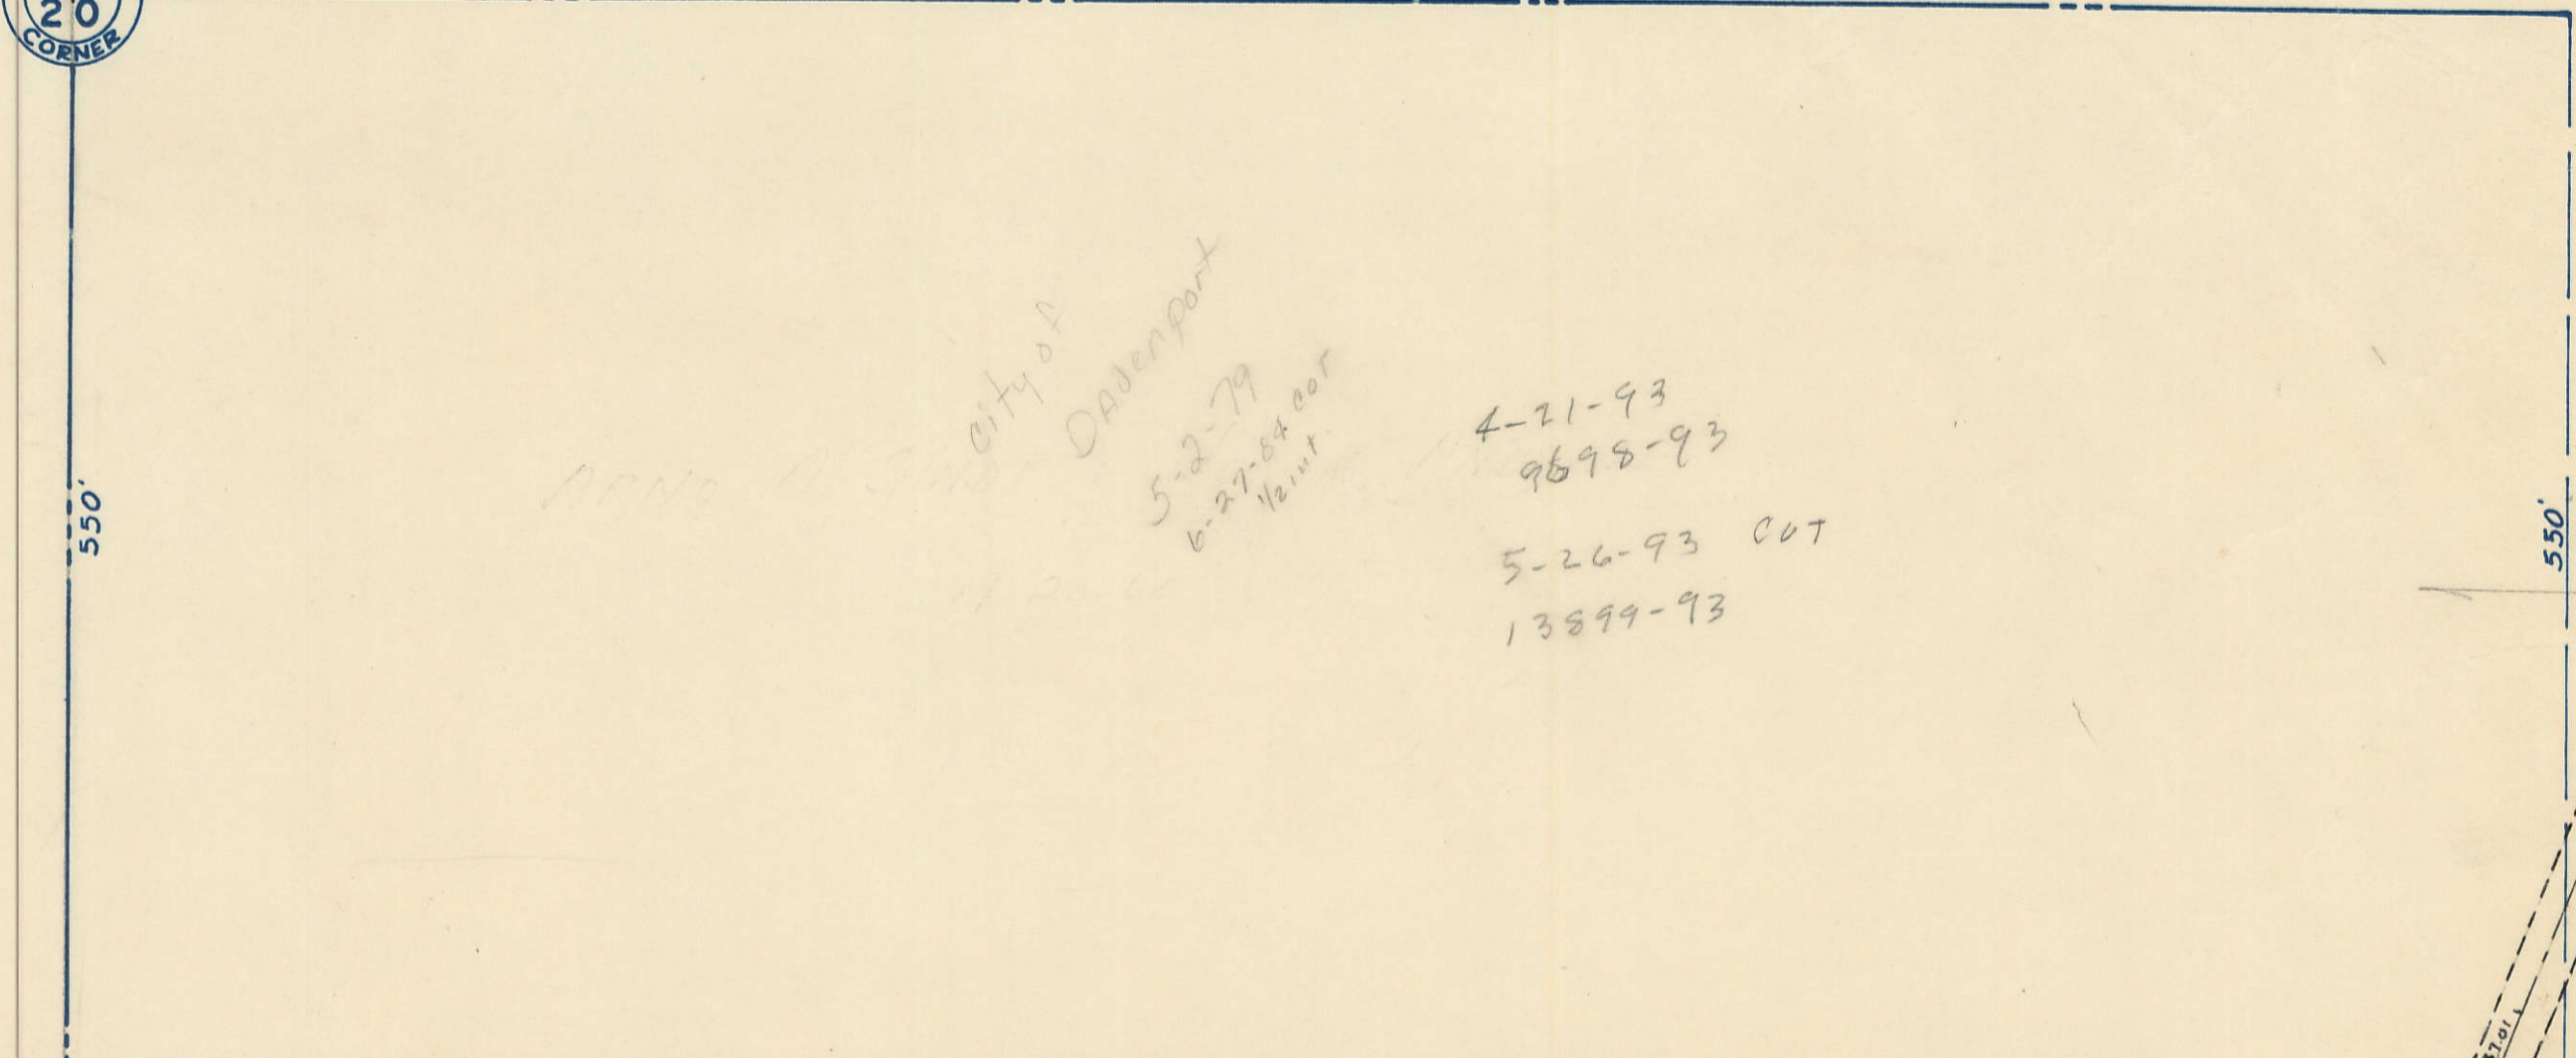 20
CORNER
City of
Davenport
5-2-79
6-27-84 cor
1/2 int
4-21-93
9698-93
5-26-93 COT
13899-93
550'
550'